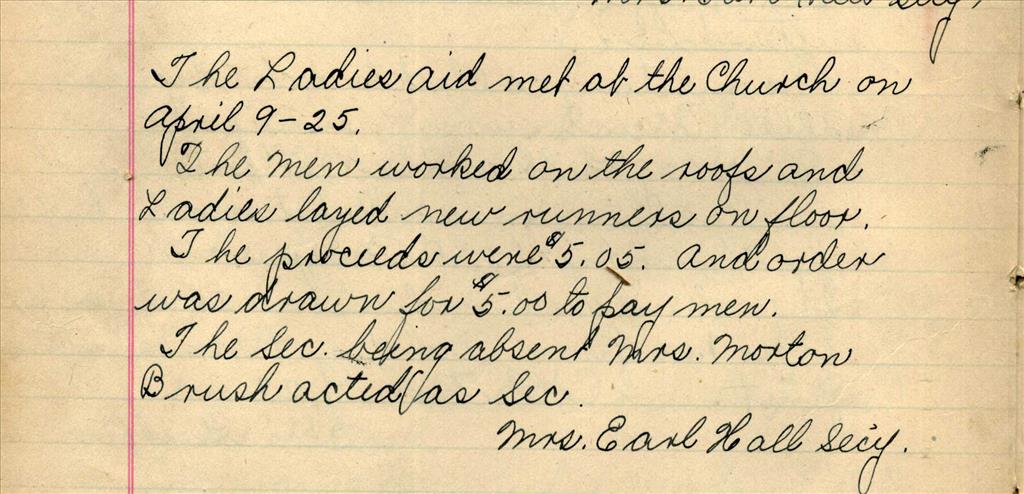 The Ladies aid met at the Church on
April 9-25.
The men worked on the roofs and
Ladies layed new runners on floor.
The proceeds were $5.05. and order
was drawn for $5.00 to pay men.
The Sec. being absent Mrs. Morton
Brush acted as Sec.
Mrs. Earl Hall Secy.